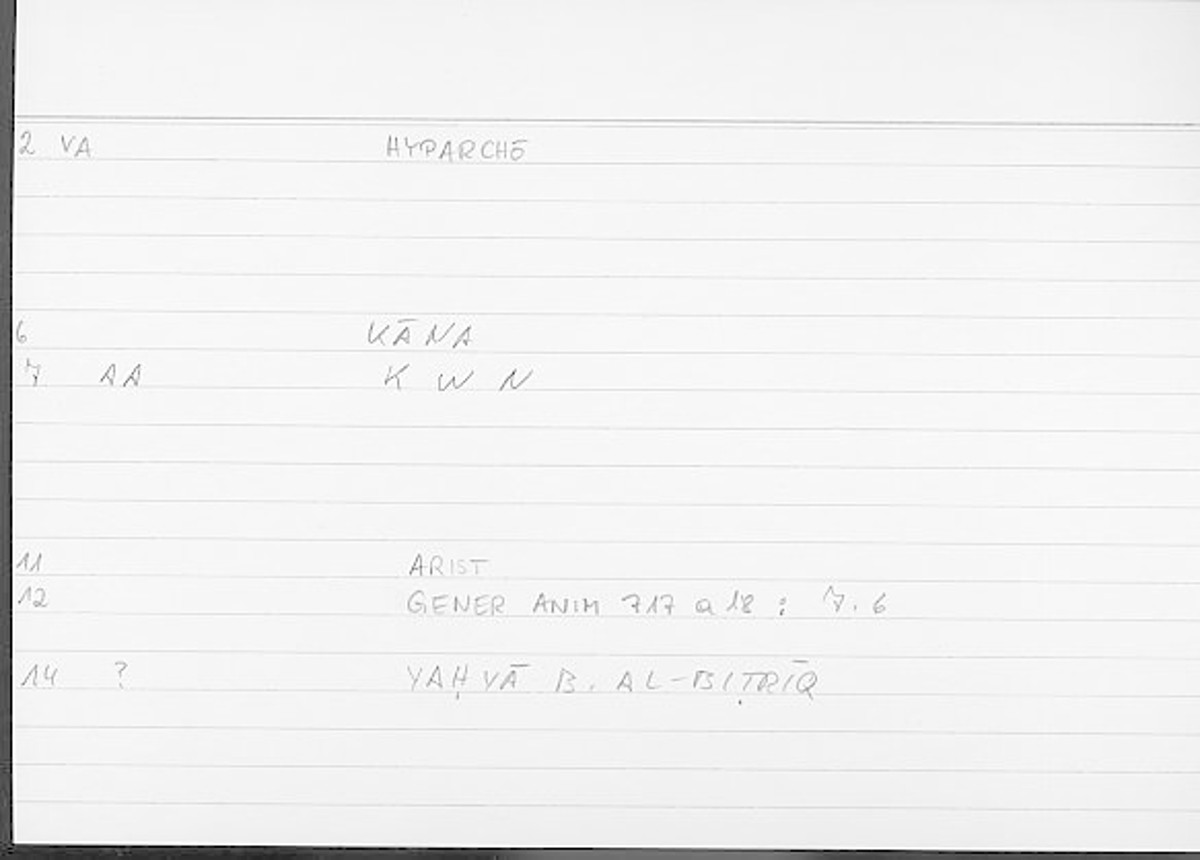 2 VA HYPARCHŌ
6 KĀNA
7 AA K W N
11 ARIST
12 GENER ANIM 717 a 18 : 7.6
14 ? YAḤYĀ B. AL-BIṬRĪQ